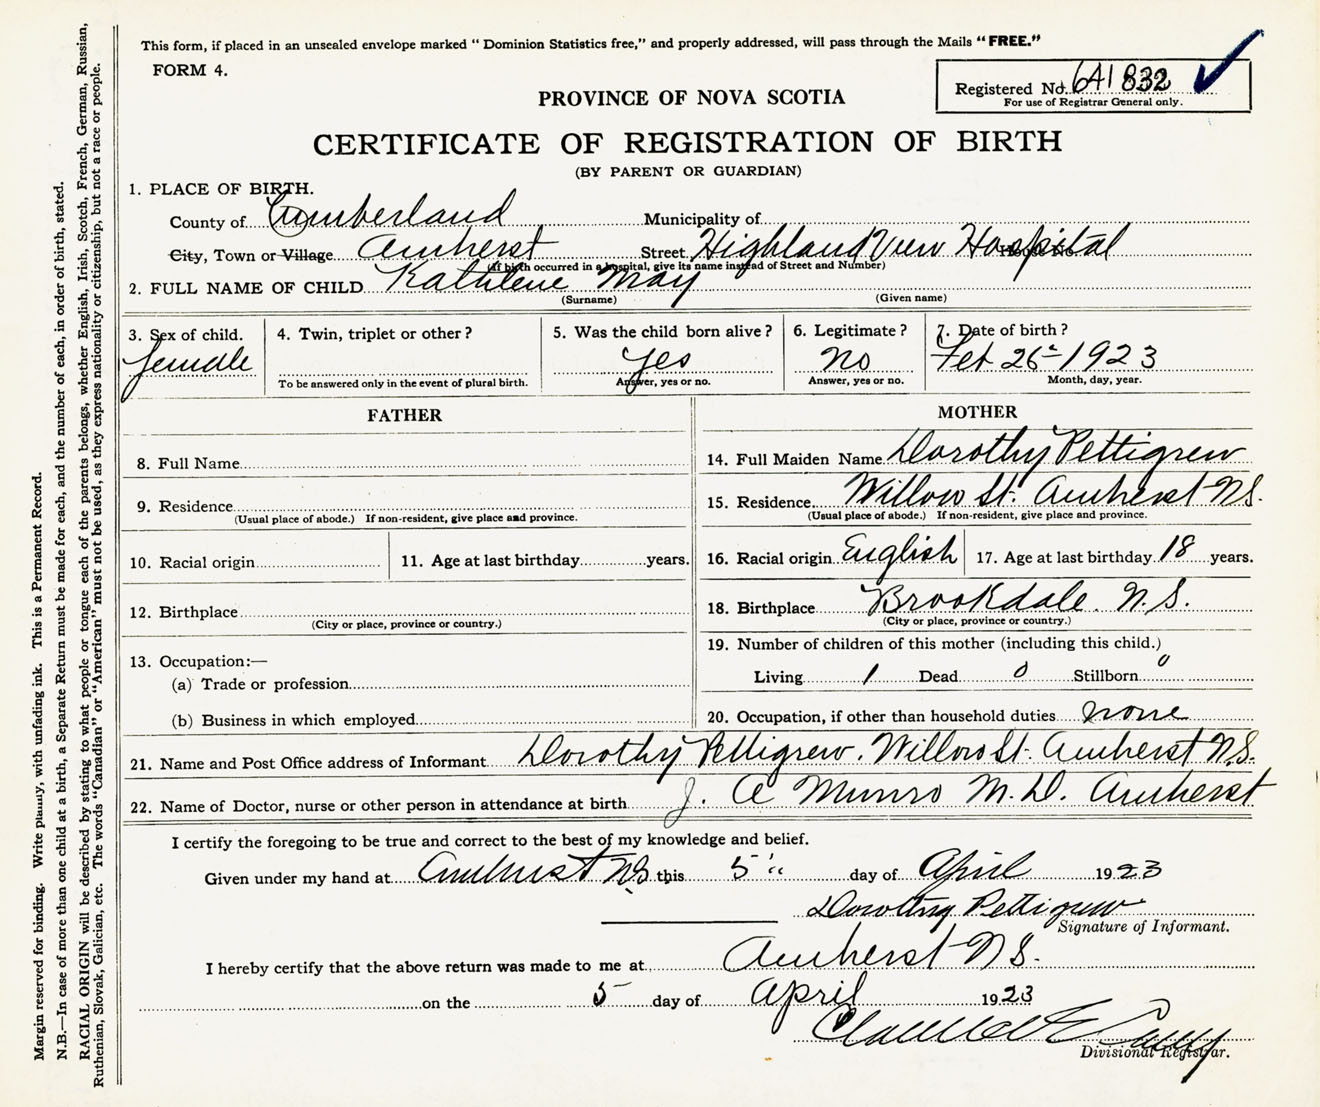 This form, if placed in an unsealed envelope marked " Dominion Statistics free," and properly addressed, will pass through the Mails "FREE."
FORM 4.
Registered No. 6A1 832
For use of Registrar General only.
PROVINCE OF NOVA SCOTIA
CERTIFICATE OF REGISTRATION OF BIRTH
(BY PARENT OR GUARDIAN)
1. PLACE OF BIRTH.
County of Cumberland Municipality of
City, Town or Village Amherst Street Highland View Hospital House No.
(If birth occurred in a hospital, give its name instead of Street and Number)
2. FULL NAME OF CHILD Kathlene May
(Surname) (Given name)
3. Sex of child. 4. Twin, triplet or other? 5. Was the child born alive? 6. Legitimate? 7. Date of birth?
female yes no Feb 26 1923
To be answered only in the event of plural birth. Answer, yes or no. Answer, yes or no. Month, day, year.
FATHER
8. Full Name
9. Residence
(Usual place of abode.) If non-resident, give place and province.
10. Racial origin 11. Age at last birthday years.
12. Birthplace
(City or place, province or country.)
13. Occupation:—
(a) Trade or profession
(b) Business in which employed
MOTHER
14. Full Maiden Name Dorothy Pettigrew
15. Residence Willow St. Amherst N.S.
(Usual place of abode.) If non-resident, give place and province.
16. Racial origin English 17. Age at last birthday 18 years.
18. Birthplace Brookdale. N.S.
(City or place, province or country.)
19. Number of children of this mother (including this child.)
Living 1 Dead 0 Stillborn 0
20. Occupation, if other than household duties none
21. Name and Post Office address of Informant Dorothy Pettigrew. Willow St. Amherst N.S.
22. Name of Doctor, nurse or other person in attendance at birth J. A Munro M.D. Amherst
I certify the foregoing to be true and correct to the best of my knowledge and belief.
Given under my hand at Amherst NS this 5" day of April 1923
Dorothy Pettigrew
Signature of Informant.
I hereby certify that the above return was made to me at Amherst N S.
on the 5 day of April 1923
Divisional Registrar.
Margin reserved for binding. Write plainly, with unfading ink. This is a Permanent Record.
N.B.—In case of more than one child at a birth, a Separate Return must be made for each, and the number of each, in order of birth, stated.
RACIAL ORIGIN will be described by stating to what people or tongue each of the parents belongs, whether English, Irish, Scotch, French, German, Russian,
Ruthenian, Slovak, Galician, etc. The words "Canadian" or "American" must not be used, as they express nationality or citizenship, but not a race or people.